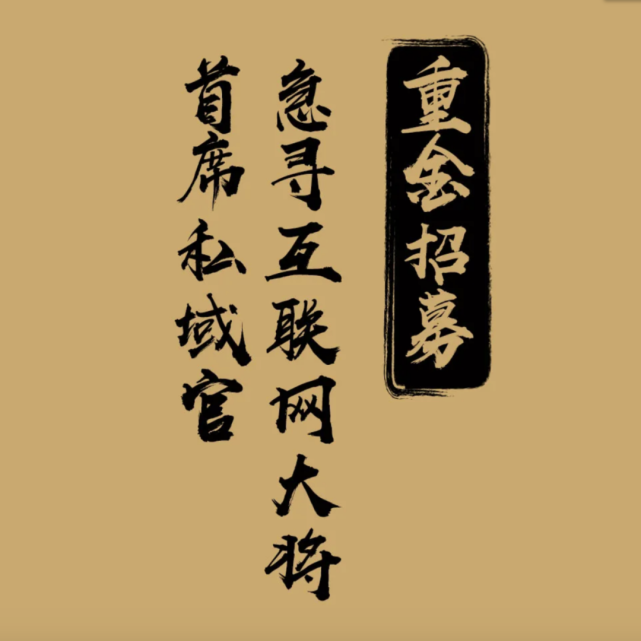 重金招募
急寻互联网大将
首席私域官